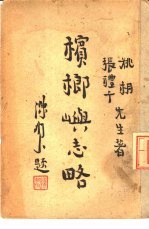 姚枬
張禮千
先生著
檳榔嶼志略
陳 題